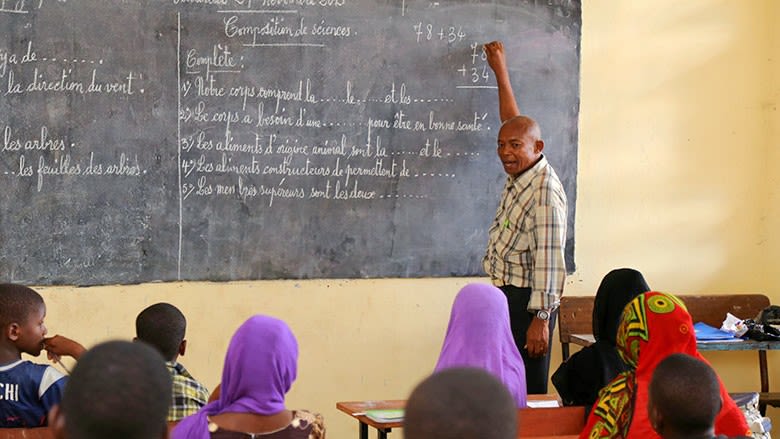 Novembre 2015
Composition de sciences.
Complète :
1°/ Notre corps comprend la ...... le ...... et les ..........
2°/ Le corps a besoin d'une ........ pour être en bonne santé.
3°/ Les aliments d'origine animal sont la ..... et le ......
4°/ Les aliments constructeurs de permettent de ..........
5°/ Les membres supérieurs sont les deux ........
78 + 34
78
+ 34
ya de ......
la direction du vent .
les arbres .
... les feuilles des arbres.
CHI